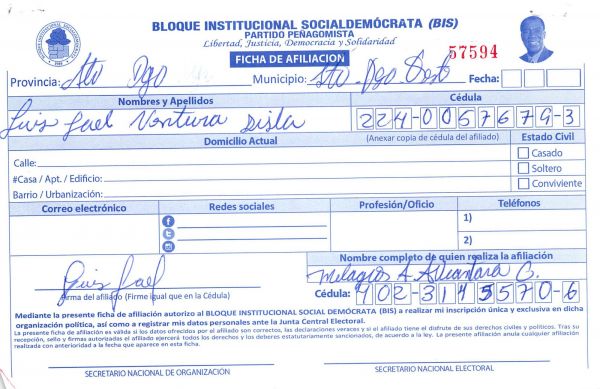 BLOQUE INSTITUCIONAL SOCIALDEMÓCRATA (BIS)
PARTIDO PEÑAGOMISTA
Libertad, Justicia, Democracia y Solidaridad
FICHA DE AFILIACION
57594
Provincia: Sto Dgo Municipio: Sto Dgo Oeste Fecha:
Nombres y Apellidos Cédula
Luis Jael Ventura Disla 224-0057679-3
Domicilio Actual (Anexar copia de cédula del afiliado) Estado Civil
Calle: Casado
#Casa / Apt. / Edificio: Soltero
Barrio / Urbanización: Conviviente
Correo electrónico Redes sociales Profesión/Oficio Teléfonos
1)
2)
Nombre completo de quien realiza la afiliación
Luis Jael Milagros A Alcantara O.
Firma del afiliado (Firme igual que en la Cédula) Cédula: 402-3145570-6
Mediante la presente ficha de afiliación autorizo al BLOQUE INSTITUCIONAL SOCIAL DEMÓCRATA (BIS) a realizar mi inscripción única y exclusiva en dicha
organización política, así como a registrar mis datos personales ante la Junta Central Electoral.
La presente ficha de afiliación es válida si los datos ofrecidos por el afiliado son correctos, las declaraciones veraces y si el afiliado tiene el disfrute de sus derechos civiles y políticos. Tras su
recepción, sello y firmas autorizadas el afiliado ejercerá todos los derechos y los deberes estatutariamente sancionados, de acuerdo a la ley. La presente afiliación anula cualquier afiliación
realizada con anterioridad a la fecha que aparece en esta ficha.
SECRETARIO NACIONAL DE ORGANIZACIÓN SECRETARIO NACIONAL ELECTORAL